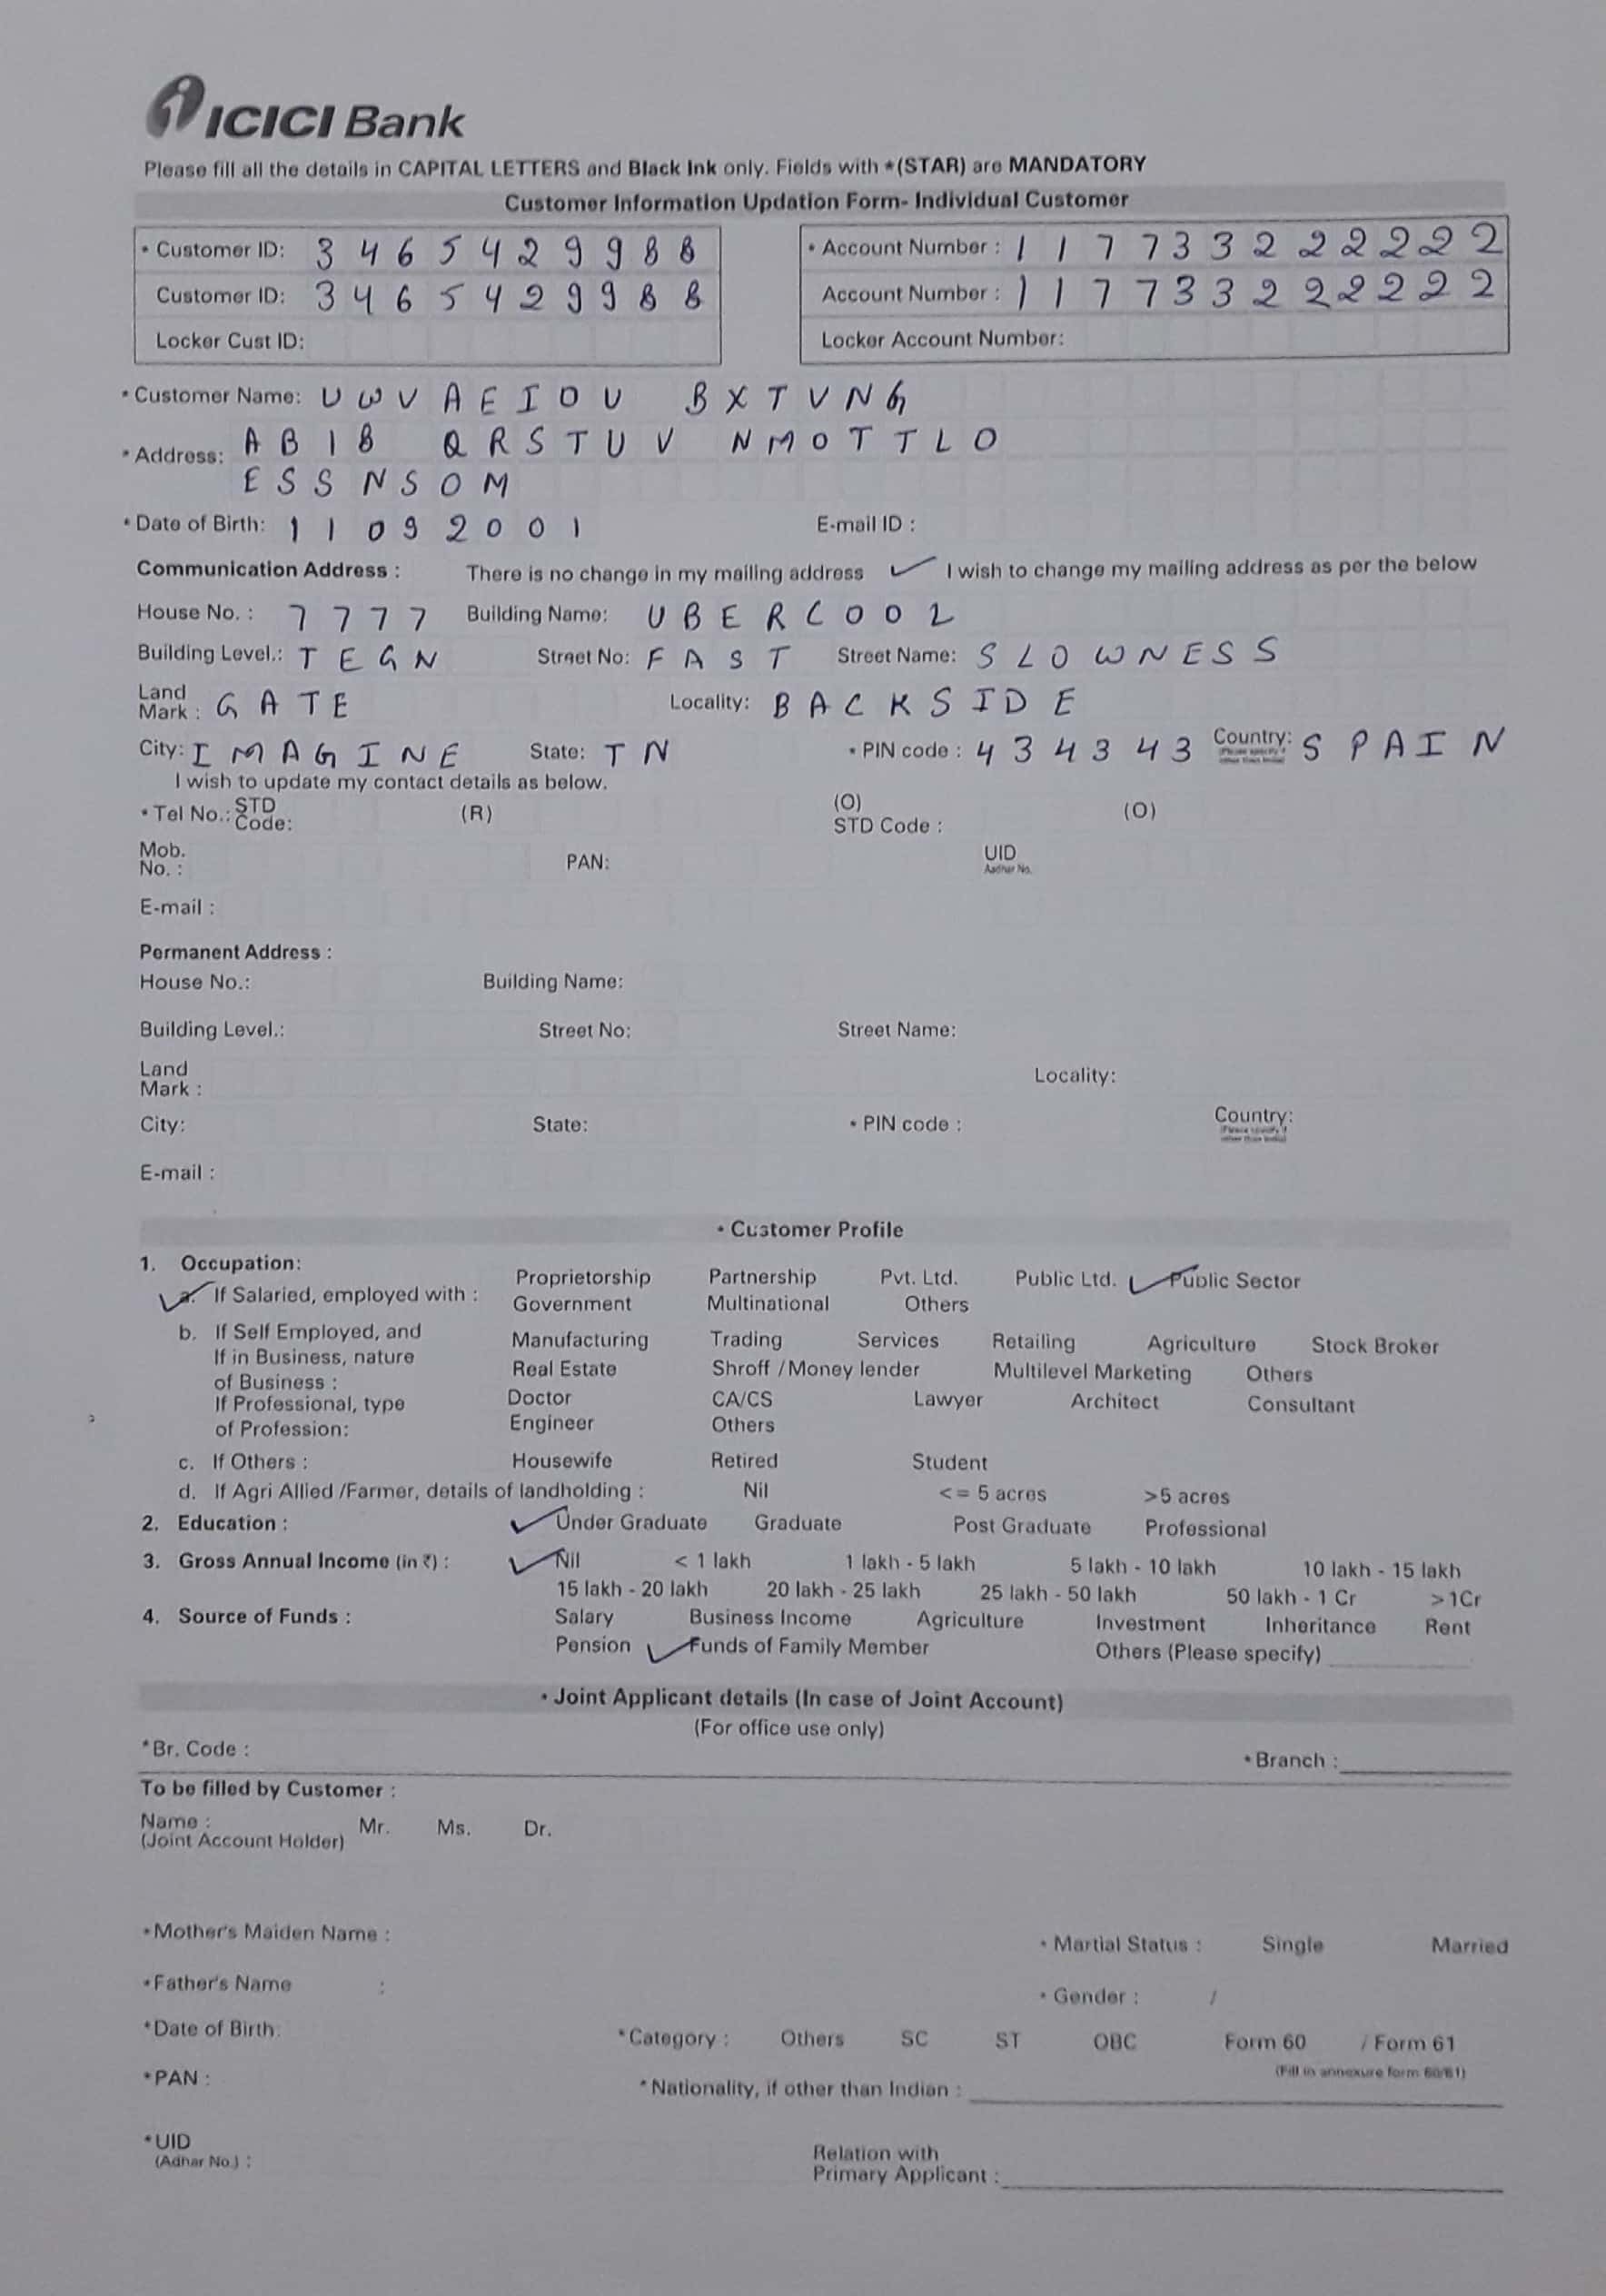 ICICI Bank
Please fill all the details in CAPITAL LETTERS and Black Ink only. Fields with *(STAR) are MANDATORY
Customer Information Updation Form- Individual Customer
* Customer ID: 3465429988 * Account Number : 117733222222
Customer ID: 3465429988 Account Number : 117733222222
Locker Cust ID: Locker Account Number:
* Customer Name: UWVAEIOU BXTVNG
* Address: AB1B QRSTUV NMOTTLO
ESSNSOM
* Date of Birth: 11092001 E-mail ID :
Communication Address : There is no change in my mailing address ✓ I wish to change my mailing address as per the below
House No. : 7777 Building Name: UBERCOOL
Building Level.: TEGN Street No: FAST Street Name: SLOWNESS
Land Mark : GATE Locality: BACKSIDE
City: IMAGINE State: TN * PIN code : 434343 Country: (Please specify if other than India) SPAIN
I wish to update my contact details as below.
* Tel No.: STD Code: (R) (O) STD Code : (O)
Mob. No. : PAN: UID Aadhar No.
E-mail :
Permanent Address :
House No.: Building Name:
Building Level.: Street No: Street Name:
Land Mark : Locality:
City: State: * PIN code : Country: (Please specify if other than India)
E-mail :
* Customer Profile
1. Occupation:
✓ a. If Salaried, employed with : Proprietorship Partnership Pvt. Ltd. Public Ltd. ✓ Public Sector
Government Multinational Others
b. If Self Employed, and If in Business, nature of Business : Manufacturing Trading Services Retailing Agriculture Stock Broker
Real Estate Shroff /Money lender Multilevel Marketing Others
If Professional, type of Profession: Doctor CA/CS Lawyer Architect Consultant
Engineer Others
c. If Others : Housewife Retired Student
d. If Agri Allied /Farmer, details of landholding : Nil <= 5 acres >5 acres
2. Education : ✓ Under Graduate Graduate Post Graduate Professional
3. Gross Annual Income (in ₹) : ✓ Nil < 1 lakh 1 lakh - 5 lakh 5 lakh - 10 lakh 10 lakh - 15 lakh
15 lakh - 20 lakh 20 lakh - 25 lakh 25 lakh - 50 lakh 50 lakh - 1 Cr >1Cr
4. Source of Funds : Salary Business Income Agriculture Investment Inheritance Rent
Pension ✓ Funds of Family Member Others (Please specify)
* Joint Applicant details (In case of Joint Account)
(For office use only)
*Br. Code : * Branch :
To be filled by Customer :
Name : (Joint Account Holder) Mr. Ms. Dr.
*Mother's Maiden Name : * Martial Status : Single Married
*Father's Name : * Gender : /
*Date of Birth: *Category : Others SC ST OBC Form 60 / Form 61
(Fill in annexure form 60/61)
*PAN : *Nationality, if other than Indian :
*UID (Adhar No.) : Relation with Primary Applicant :